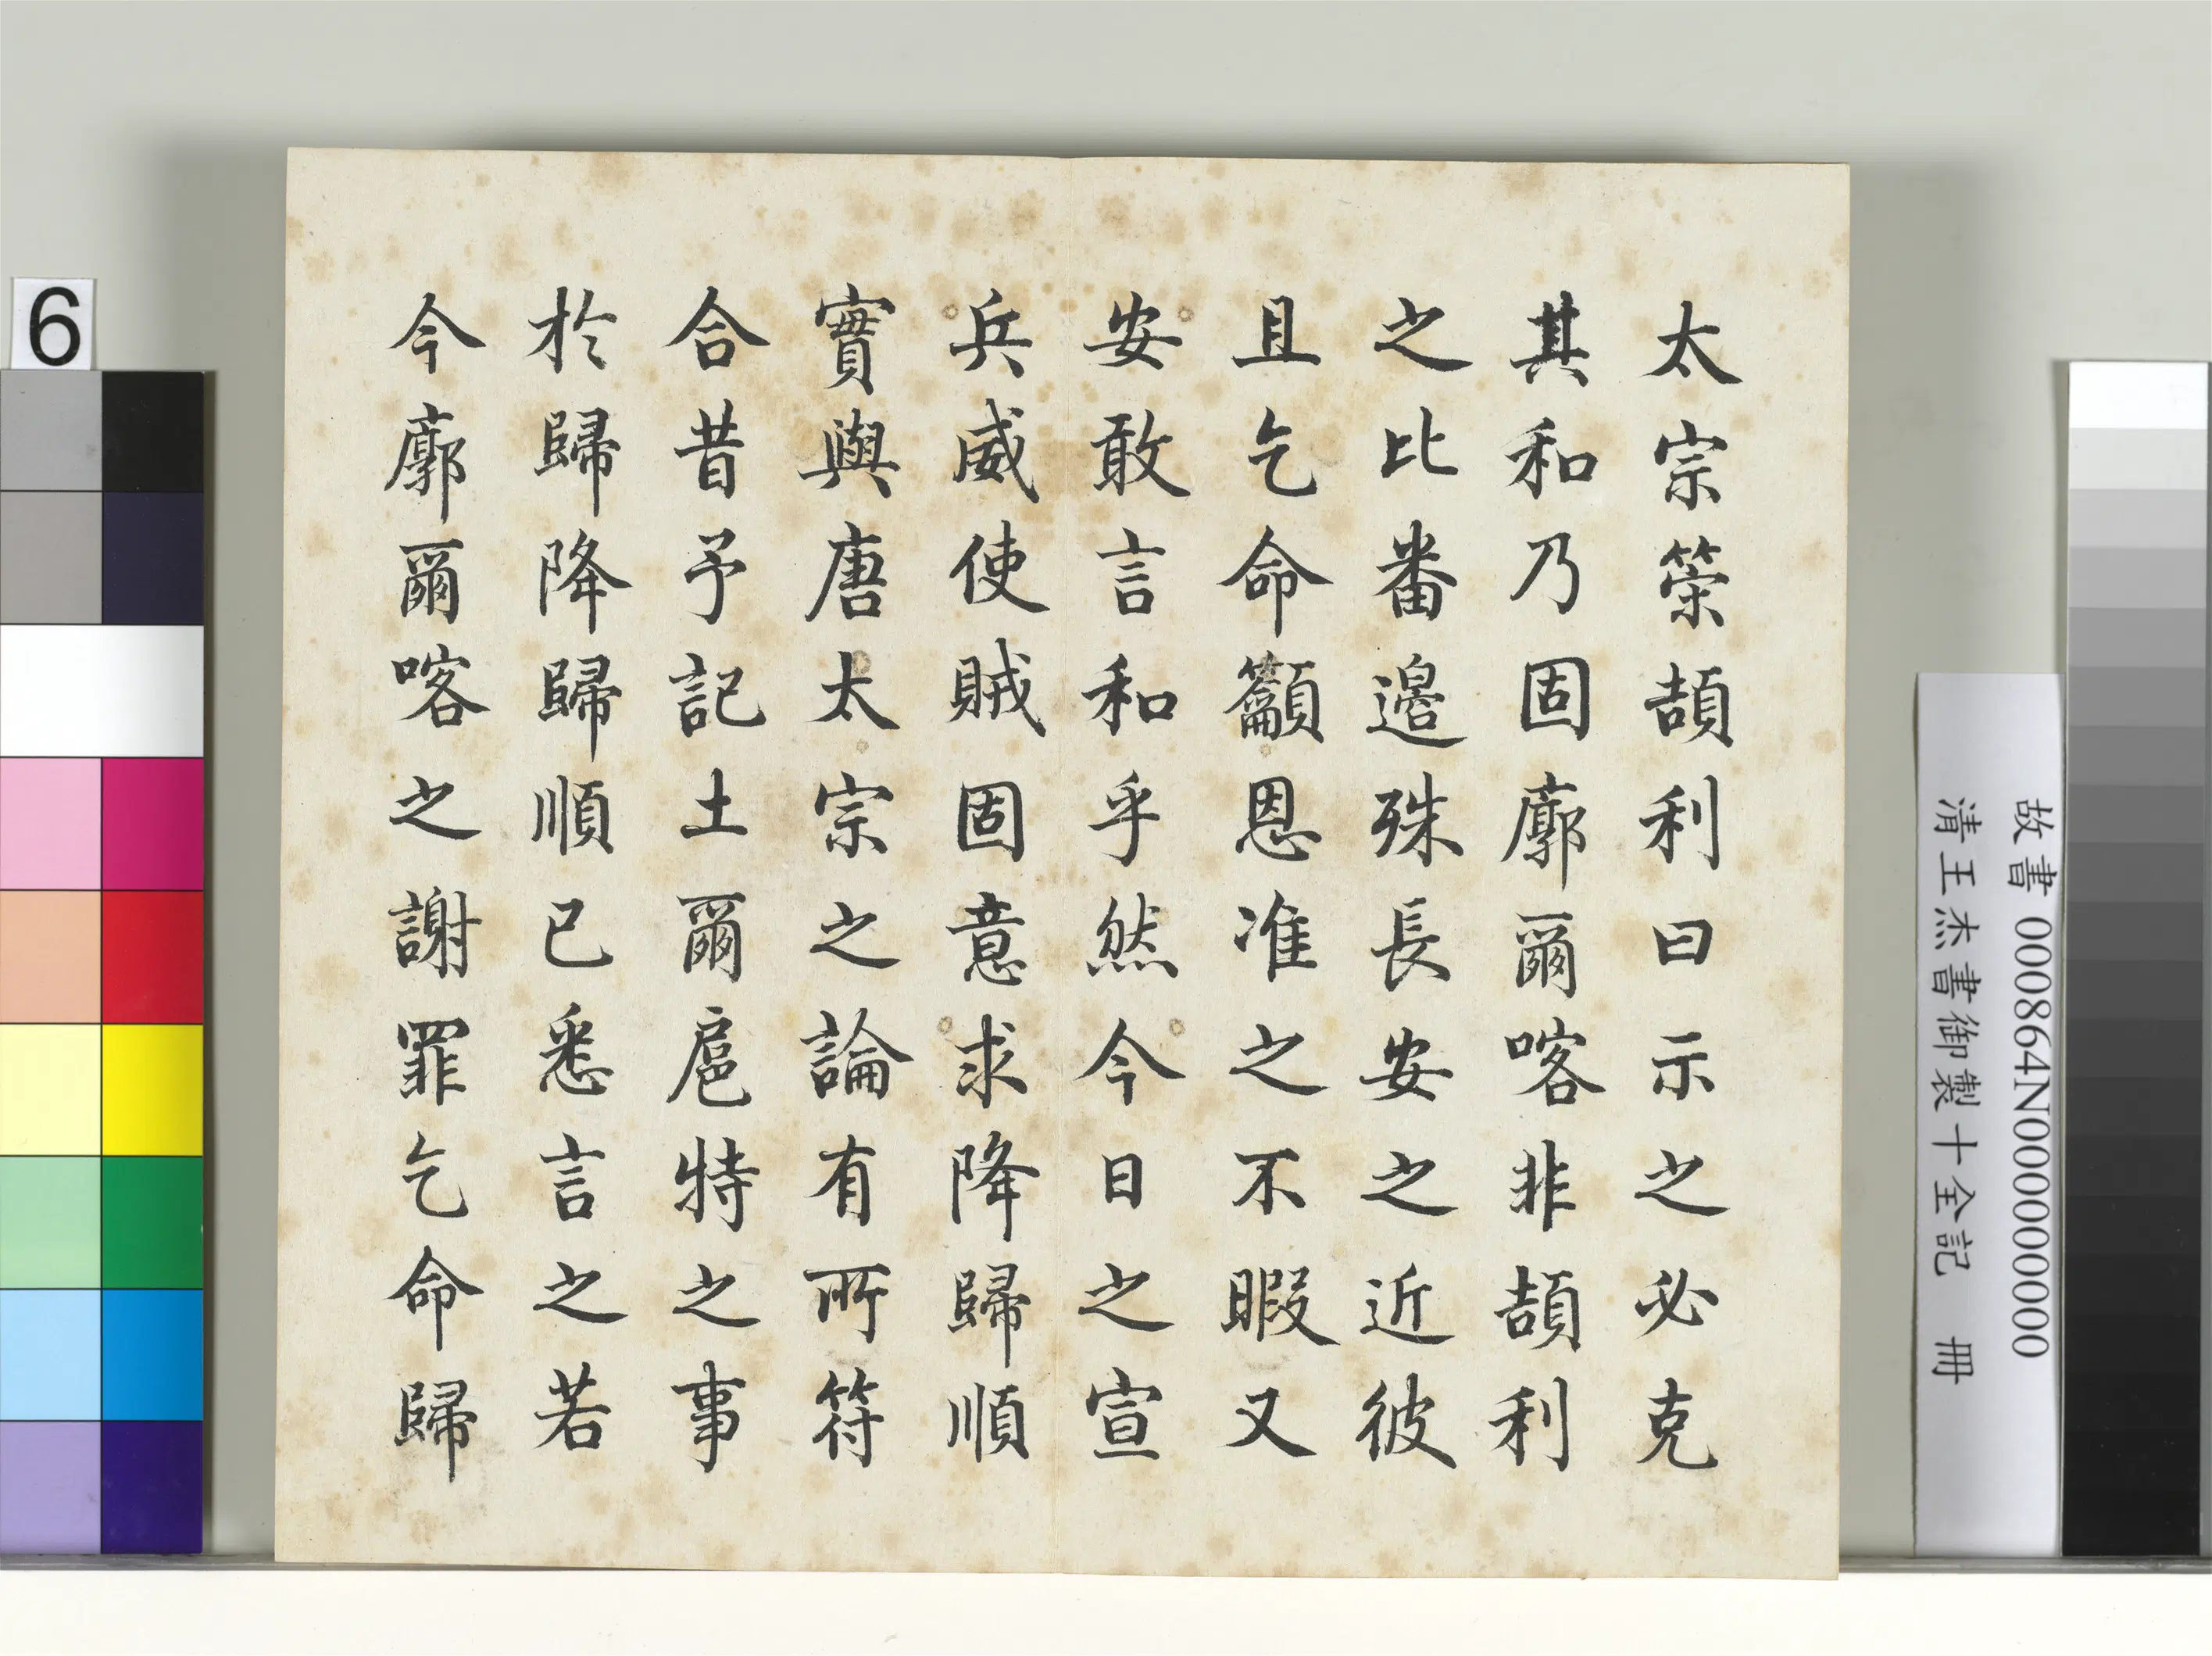 太宗䇿頡利曰示之必克
其和乃固廓爾喀非頡利
之比番邊殊長安之近彼
且乞命籲恩准之不暇又
安敢言和乎然今日之宣
兵威使賊固意求降歸順
實與唐太宗之論有所符
合昔予記土爾扈特之事
於歸降歸順已悉言之若
今廓爾喀之謝罪乞命歸
6
故書 000864N000000000
清王杰書御製十全記 冊